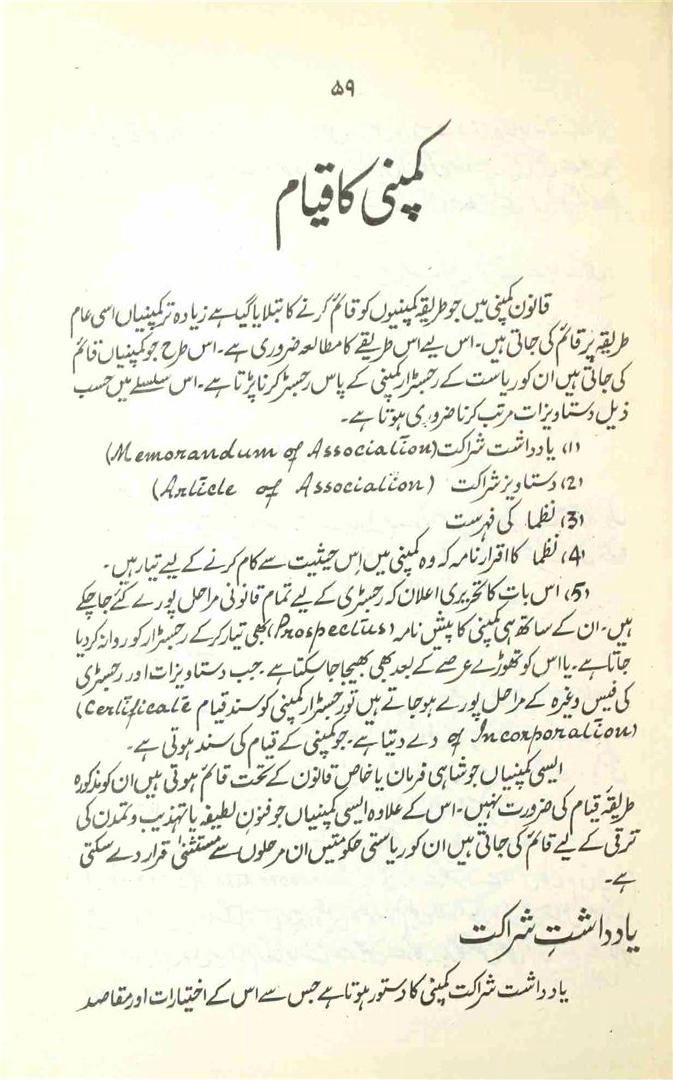 ۵۹
کمپنی کا قیام
قانون کمپنی میں جو طریقہ کمپنیوں کو قائم کرنے کا بتلایا گیا ہے زیادہ تر کمپنیاں اسی عام
طریقہ پر قائم کی جاتی ہیں۔ اس لیے اس طریقے کا مطالعہ ضروری ہے۔ اس طرح جو کمپنیاں قائم
کی جاتی ہیں ان کو ریاست کے رجسٹرار کمپنی کے پاس رجسٹر کرنا پڑتا ہے۔ اس سلسلے میں حسب
ذیل دستاویزات مرتب کرنا ضروری ہوتا ہے۔
(1) یادداشت شراکت (Memorandum of Association)
(2) دستاویز شراکت (Article of Association)
(3) نظما کی فہرست
(4) نظما کا اقرار نامہ کہ وہ کمپنی میں اس حیثیت سے کام کرنے کے لیے تیار ہیں۔
(5) اس بات کا تحریری اعلان کہ رجسٹری کے لیے تمام قانونی مراحل پورے کئے جا چکے
ہیں۔ ان کے ساتھ ہی کمپنی کا پیش نامہ (Prospectus) بھی تیار کر کے رجسٹرار کو روانہ کر دیا
جاتا ہے۔ یا اس کو تھوڑے عرصے کے بعد بھی بھیجا جا سکتا ہے۔ جب دستاویزات اور رجسٹری
کی فیس وغیرہ کے مراحل پورے ہو جاتے ہیں تو رجسٹرار کمپنی کو سند قیام (Certificate
of Incorporation) دے دیتا ہے۔ جو کمپنی کے قیام کی سند ہوتی ہے۔
ایسی کمپنیاں جو شاہی فرمان یا خاص قانون کے تحت قائم ہوتی ہیں ان کو مذکورہ
طریقۂ قیام کی ضرورت نہیں۔ اس کے علاوہ ایسی کمپنیاں جو فنونِ لطیفہ یا تہذیب و تمدن کی
ترقی کے لیے قائم کی جاتی ہیں ان کو ریاستی حکومتیں ان مرحلوں سے مستثنیٰ قرار دے سکتی
ہے۔
یادداشتِ شراکت
یادداشت شراکت کمپنی کا دستور ہوتا ہے جس سے اس کے اختیارات اور مقاصد